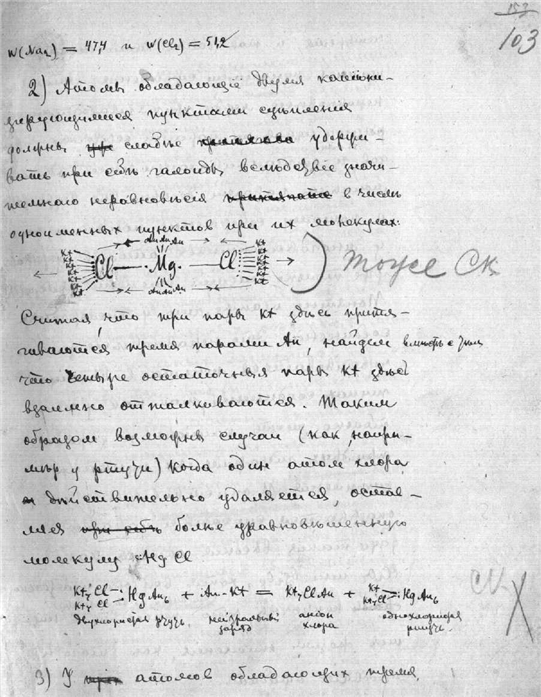 153
103
W(Na₂) = 474 и W(Cl₂) = 542
2) Атомы обладающіе двумя катіони-
зирующимися пунктами сцѣпленія
должны слабѣе удержи-
вать при себѣ галоиды, вслѣдствіе значи-
тельнаго неравновѣсія в числѣ
одноименных пунктов при их молекулах:
An An An
Kt Kt Kt Kt Kt Kt Kt Cl — Mg — Cl Kt Kt Kt Kt Kt Kt Kt
An An An
тоже Ск
Считая, что три пары Kt здѣсь притя-
гиваются тремя парами An, найдем вмѣстѣ с этим
что четыре остаточныя пары Kt здѣсь
взаимно отталкиваются. Таким
образом возможны случаи (как напри-
мѣр у ртути) когда один атом хлора
дѣйствительно удаляется, остав-
ляя болѣе уравновѣшенную
молекулу HgCl
Kt₇ Cl Kt₇ Cl : Hg An₆ + An-Kt = Kt₇ Cl An + Kt Kt₇ Cl : Hg An₆
двухлористая ртуть нейтральный заряд аніон хлора однохлористая ртуть
Ск
3) У атомов обладающих тремя